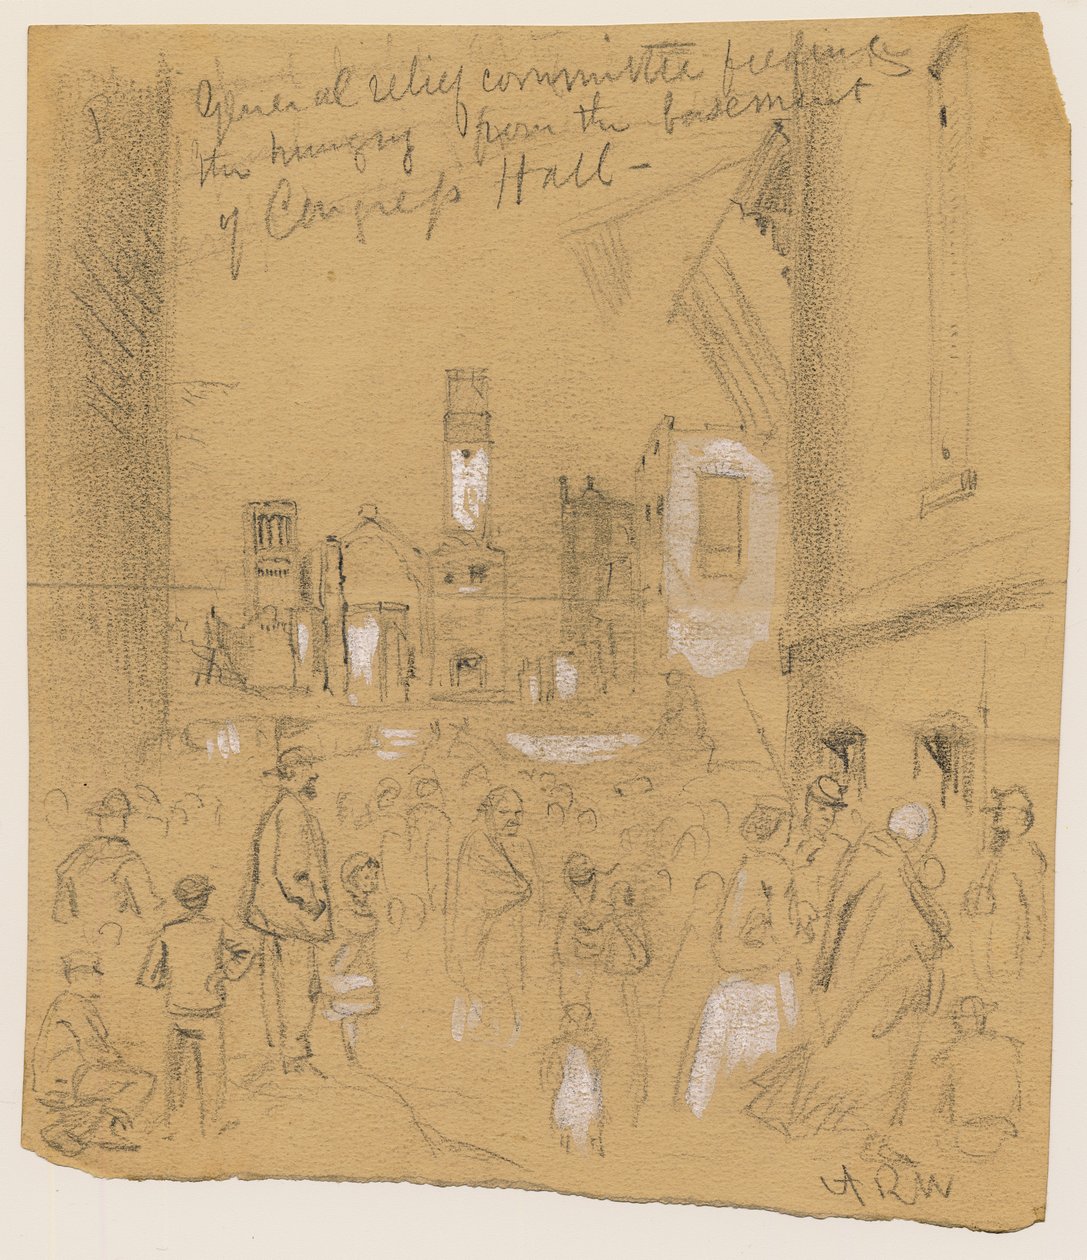 General relief committee feeding
the hungry from the basement
of Congress Hall -
ARW